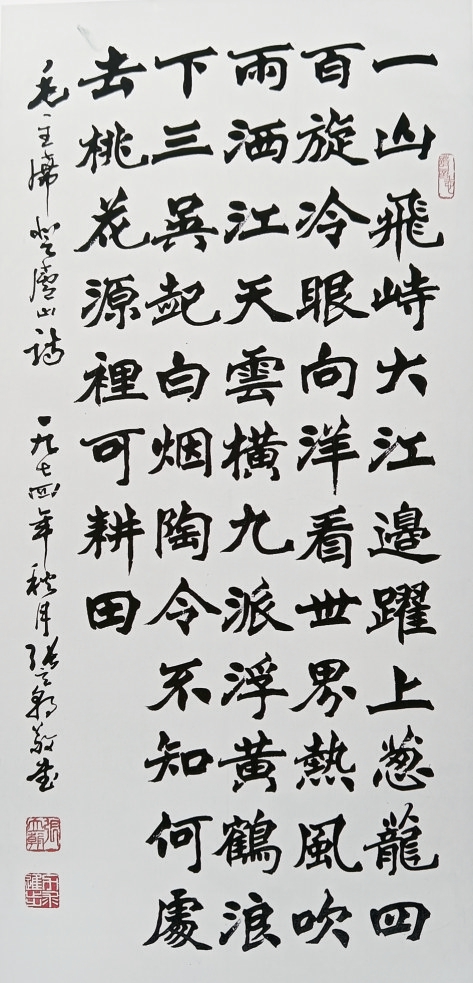 一山飛峙大江邊躍上葱龍四
百旋冷眼向洋看世界熱風吹
雨洒江天雲橫九派浮黄鶴浪
下三吳起白烟陶令不知何處
去桃花源裡可耕田
毛主席登廬山詩 一九七四年秋月張立朝敬書